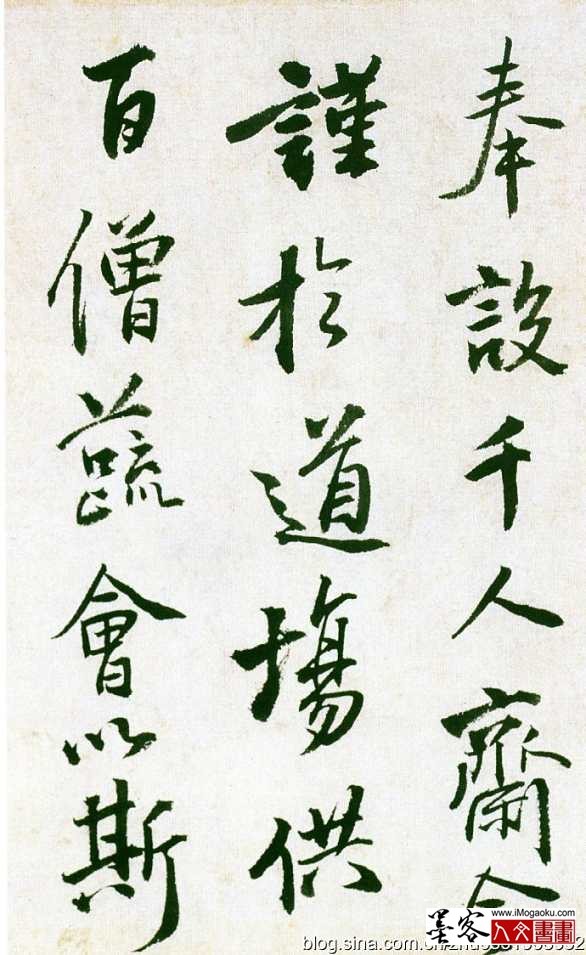 奉設千人齋今
謹於道場供
百僧蔬會以斯
www.iMogaoku.com
墨客
人文書畫
blog.sina.com.cn